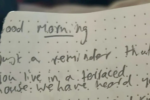 ood morning
ust a reminder that
you live in a terraced
ouse. We have heard y